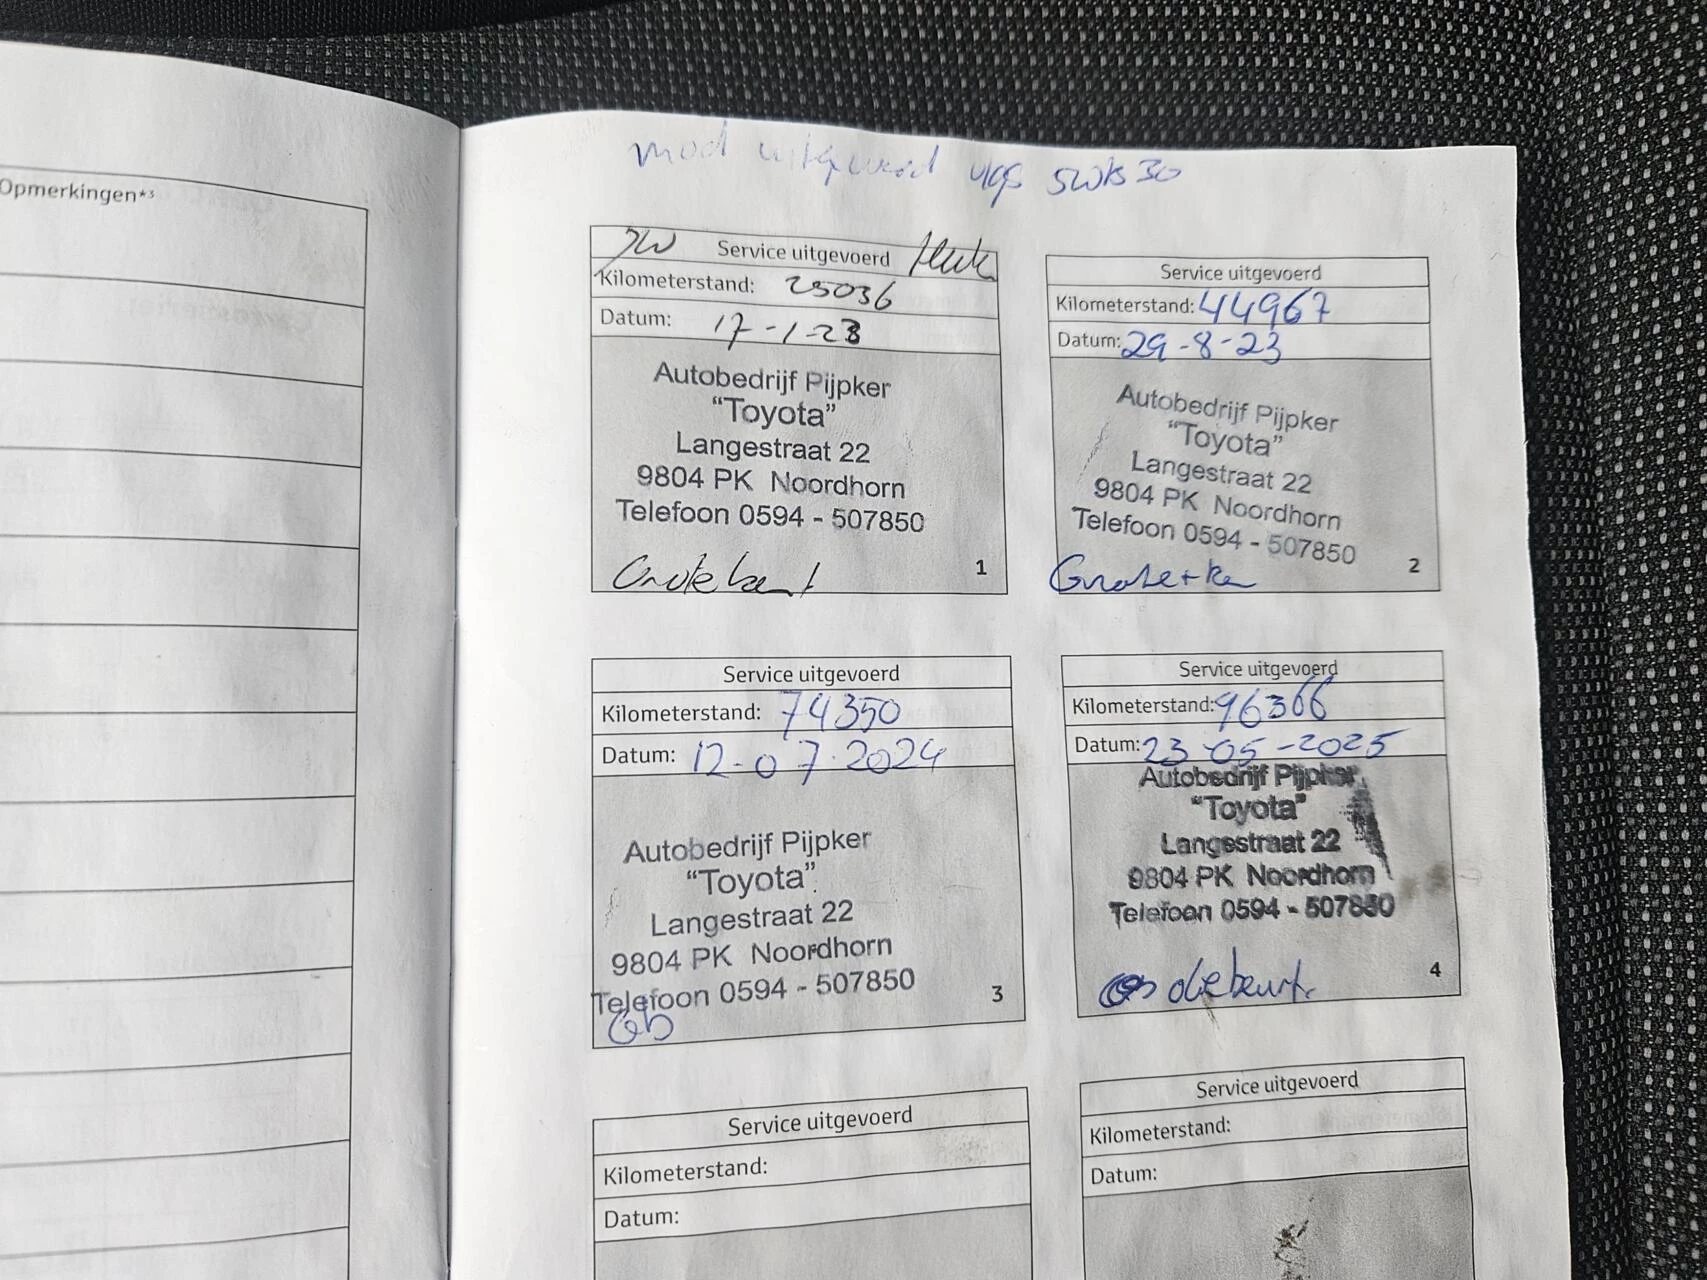 Opmerkingen*3
mod uitgevoerd vlgs SWS 30
Service uitgevoerd
Kilometerstand: 25036
Datum: 17-1-23
Autobedrijf Pijpker
"Toyota"
Langestraat 22
9804 PK Noordhorn
Telefoon 0594 - 507850
1
Service uitgevoerd
Kilometerstand: 44967
Datum: 29-8-23
Autobedrijf Pijpker
"Toyota"
Langestraat 22
9804 PK Noordhorn
Telefoon 0594 - 507850
2
Service uitgevoerd
Kilometerstand: 74350
Datum: 12-07-2024
Autobedrijf Pijpker
"Toyota"
Langestraat 22
9804 PK Noordhorn
Telefoon 0594 - 507850
Gb
3
Service uitgevoerd
Kilometerstand: 96366
Datum: 23-05-2025
Autobedrijf Pijpker
"Toyota"
Langestraat 22
9804 PK Noordhorn
Telefoon 0594 - 507850
4
Service uitgevoerd
Kilometerstand:
Datum:
Service uitgevoerd
Kilometerstand:
Datum: